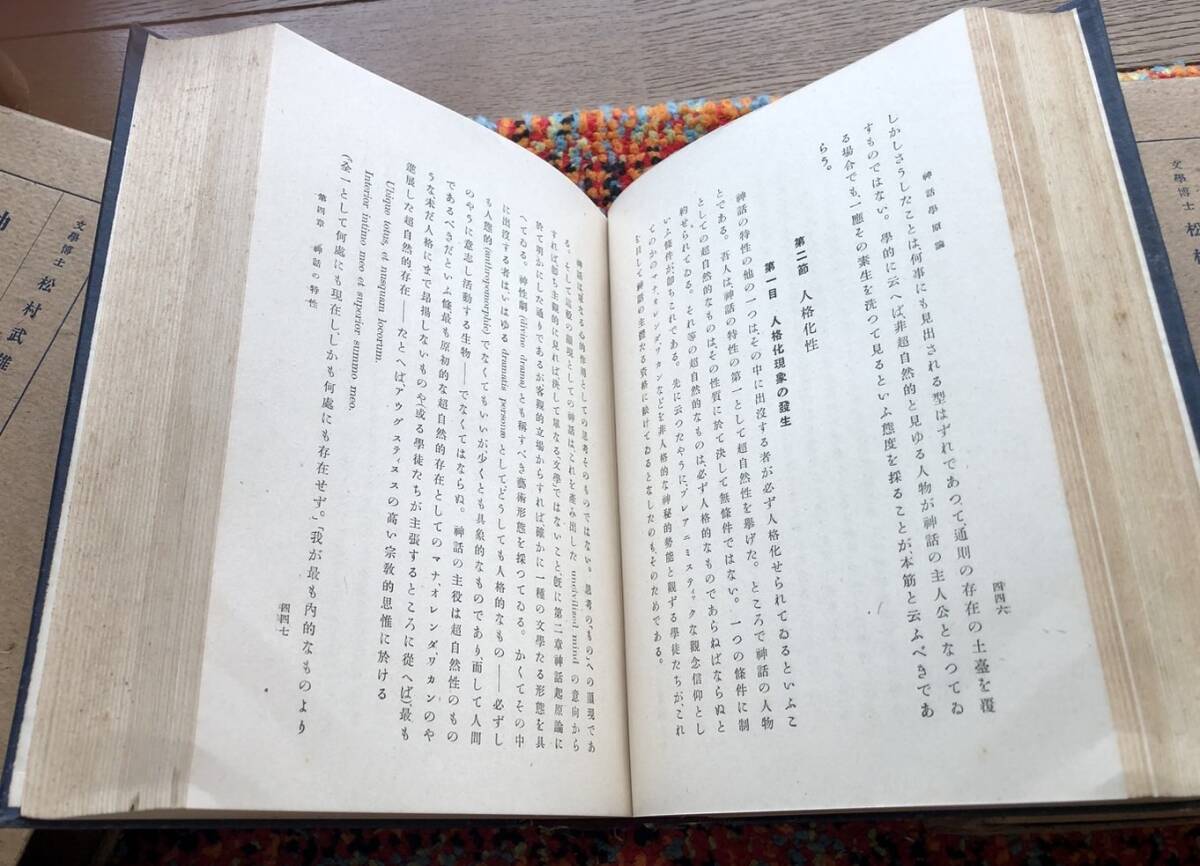 神話學原論
四四六
しかしさうしたことは、何事にも見出される型はずれであつて通則の存在の土臺を覆
すものではない。學的に云へば、非超自然的と見ゆる人物が神話の主人公となつてゐ
る場合でも、一應その素生を洗つて見るといふ態度を採ることが、本筋と云ふべきであ
らう。
第二節 人格化性
第一目 人格化現象の發生
神話の特性の他の一つは、その中に出沒する者が必ず人格化せられてゐるといふこ
とである。吾人は、神話の特性の第一として超自然性を擧げた。ところで神話の人物
としての超自然的なものは、その性質に於て決して無條件ではない。一つの條件に制
約せられてゐる。それ等の超自然的なものは、必ず人格的なものであらねばならぬと
いふ條件が、卽ちこれである。先に云つたやうに、プレアニミスティックな觀念信仰とし
てのかのマナ、オレンダ、ワカンなどを非人格的な神秘的勢能と觀ずる學徒たちが、これ
を目して神話の主體たる資格に缺けてゐるとなしたのも、そのためである。
神話は單なる心的作用としての思考そのものではない。思考の、ものへの顯現であ
る。そして這般の顯現としての神話は、これを產み出した uncivilised mind の意向から
すれば卽ち主觀的に見れば決して單なる「文學」ではないこと、旣に第二章神話起原論に
於て明かにした通りであるが、客觀的立場からすれば確かに一種の文學たる形態を具
へてゐる。神性劇 (divine drama) とも稱すべき藝術形態を採つてゐる。かくてその中
に出沒する者は、いはゆる dramatis personæ として、どうしても人格的なもの——必ずし
も人態的 (anthropomorphic) でなくてもいいが、少くとも具象的なものであり、而して人間
のやうに意志し活動する生物——でなくてはならぬ。神話の主役は超自然性のもの
であるべきだといふ條、最も原初的な超自然的存在としてのマナ、オレンダ、ワカンのや
うな未だ人格にまで昂揚しないものや(或る學徒たちが主張するところに從へば)、最も
進展した超自然的存在——たとへばアウグスティヌスの高い宗敎的思惟に於ける
Ubique totus, et nusquam locorum.
Interior intimo meo et superior summo meo.
(「全一として何處にも現在し、しかも何處にも存在せず。」「我が最も內的なものより
第四章 神話の特性
四四七
文學博士 松村武雄
神
文學博士 松